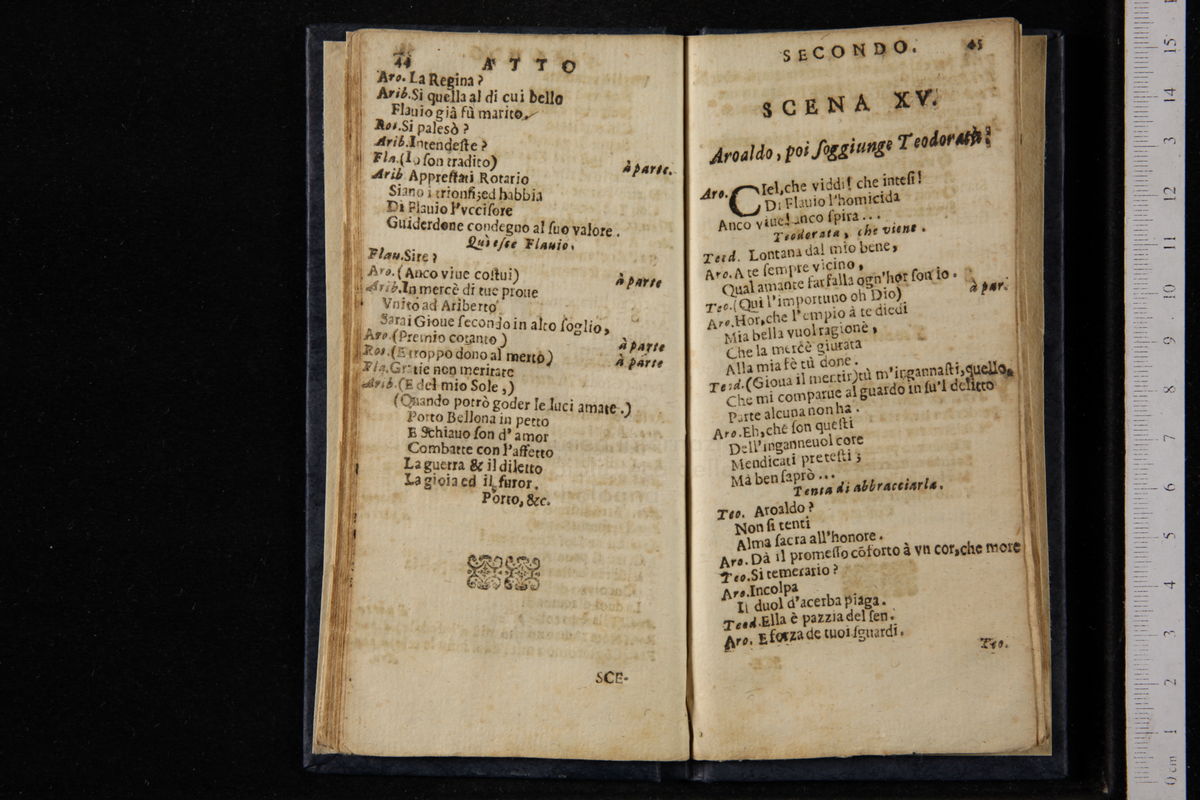 44 ATTO
Aro. La Regina?
Arib. Si quella al di cui bello
Flauio già fù marito.
Ros. Si palesò?
Arib. Intendeste?
Fla. (Io son tradito) à parte.
Arib Apprestati Rotario
Siano i trionfi; ed habbia
Di Flauio l'vccisore
Guiderdone condegno al suo valore.
Quì esce Flauio.
Flau. Sire?
Aro. (Anco viue costui) à parte
Arib. In mercè di tue proue
Vnito ad Ariberto
Sarai Gioue secondo in alto soglio,
Aro. (Premio cotanto) à parte
Ros. (E troppo dono al merto) à parte
Fla. Gratie non meritate
Arib. (E del mio Sole,)
(Quando potrò goder le luci amate.)
Porto Bellona in petto
E Schiauo son d'amor
Combatte con l'affetto
La guerra & il diletto
La gioia ed il furor.
Porto, &c.
SCE-
SECONDO. 45
SCENA XV.
Aroaldo, poi soggiunge Teodorata.
Aro. CIel, che viddi! che intesi!
Di Flauio l'homicida
Anco viue! anco spira...
Teodorata, che viene.
Teod. Lontana dal mio bene,
Aro. A te sempre vicino,
Qual amante farfalla ogn'hor son io.
Teo. (Qui l'importuno oh Dio) à par.
Aro. Hor, che l'empio à te diedi
Mia bella vuol ragione,
Che la mercè giurata
Alla mia fè tù done.
Teod. (Gioua il mentir) tù m'ingannasti, quello,
Che mi comparue al guardo in su'l delitto
Parte alcuna non ha.
Aro. Eh, che son questi
Dell'ingannneuol core
Mendicati pretesti;
Mà ben saprò...
Tenta di abbracciarla.
Teo. Aroaldo?
Non si tenti
Alma sacra all'honore.
Aro. Dà il promesso cõforto à vn cor, che more
Teo. Si temerario?
Aro. Incolpa
Il duol d'acerba piaga.
Teod. Ella è pazzia del sen.
Aro. E forza de tuoi sguardi.
Teo.